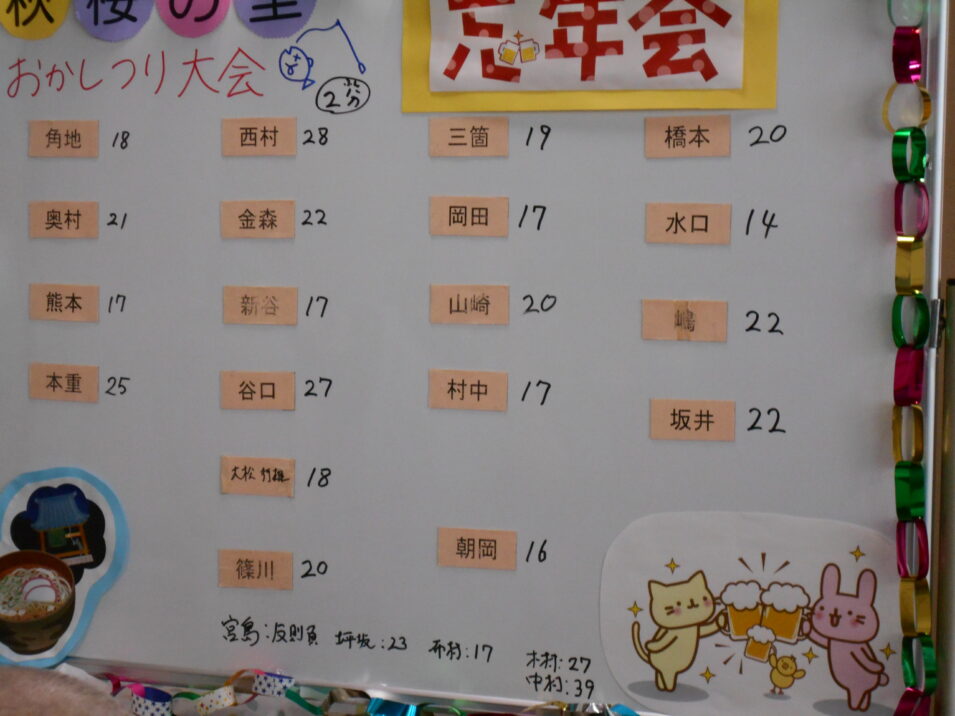 秋桜の里
忘年会
おかしつり大会
2分
角地 18
奥村 21
熊本 17
本重 25
西村 28
金森 22
新谷 17
谷口 27
大松 18
篠川 20
三箇 19
岡田 17
山崎 20
村中 17
朝岡 16
橋本 20
水口 14
嶋 22
坂井 22
宮島:反則負 坪坂:23 布村:17 木村:27
中村:39